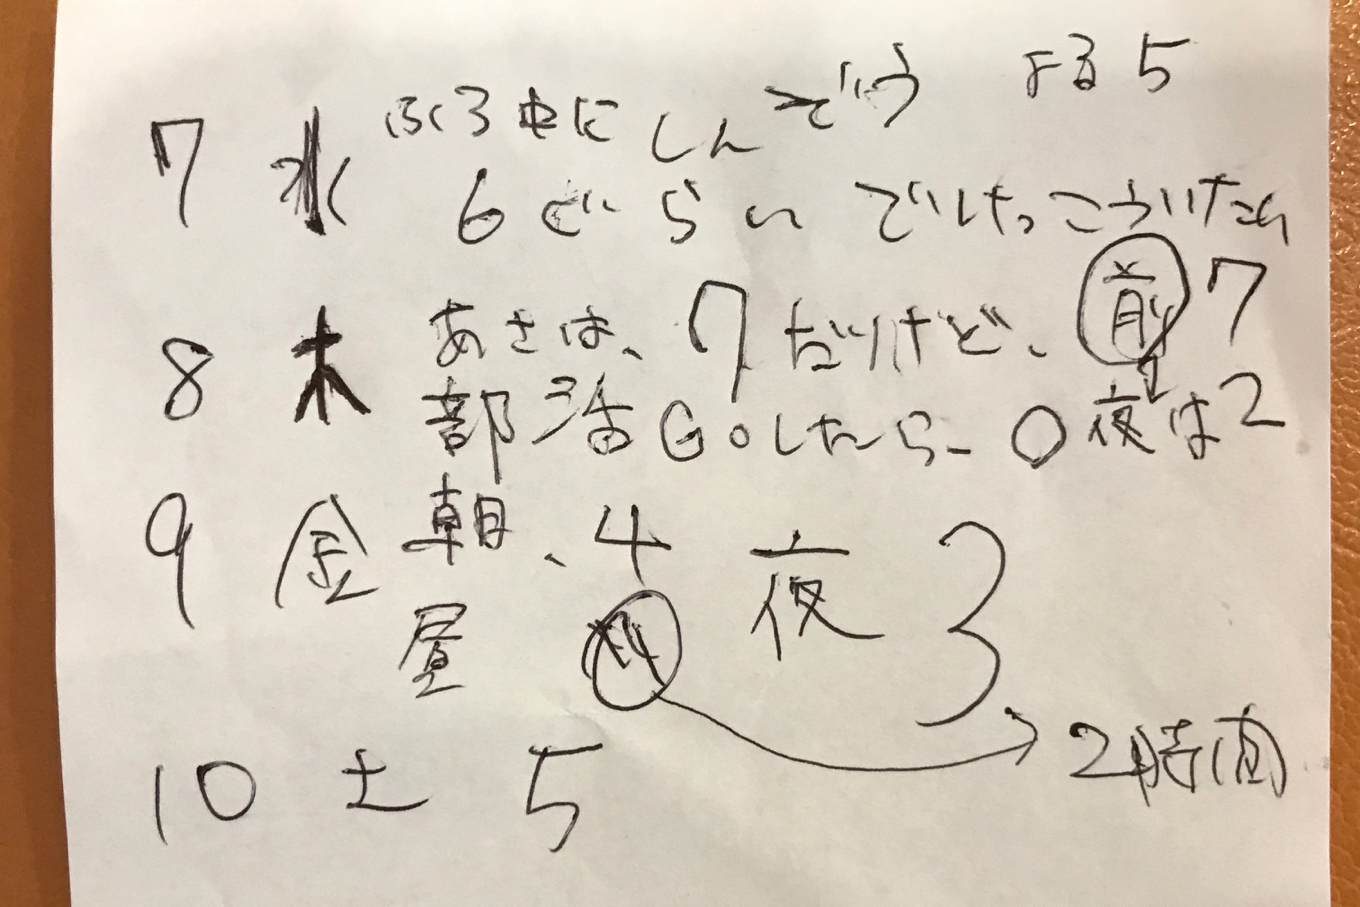 7 水 ふくろ中に しんどう よる5
6どらい でけっこういたい
8 木 あさは、7だけど、前7
部活Goしたら 0 夜は2
9 金 朝、4 夜 3
昼
2時間
10 土 5